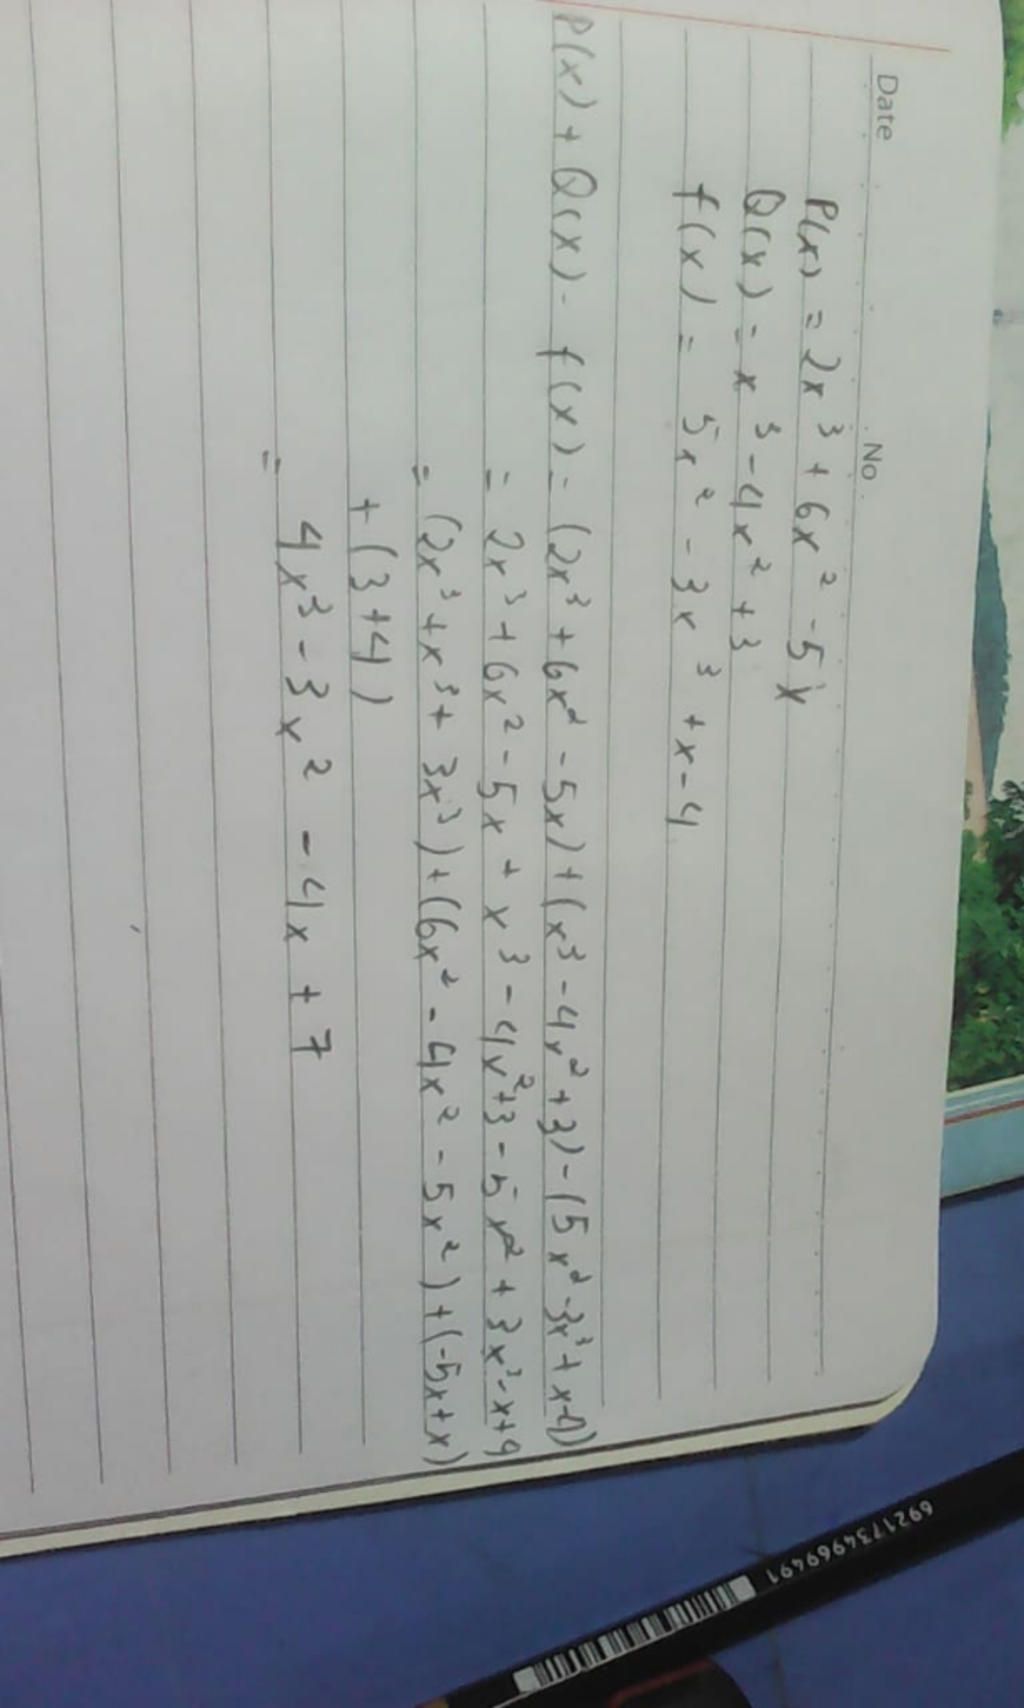 Date
No.
P(x) = 2x³ + 6x² - 5x
Q(x) = x³ - 4x² + 3
f(x) = 5x² - 3x³ + x - 4
P(x) + Q(x) - f(x) = (2x³ + 6x² - 5x) + (x³ - 4x² + 3) - (5x² - 3x³ + x - 4)
= 2x³ + 6x² - 5x + x³ - 4x² + 3 - 5x² + 3x³ - x + 4
= (2x³ + x³ + 3x³) + (6x² - 4x² - 5x²) + (-5x + x)
+ (3 + 4)
= 4x³ - 3x² - 4x + 7
6921734969491